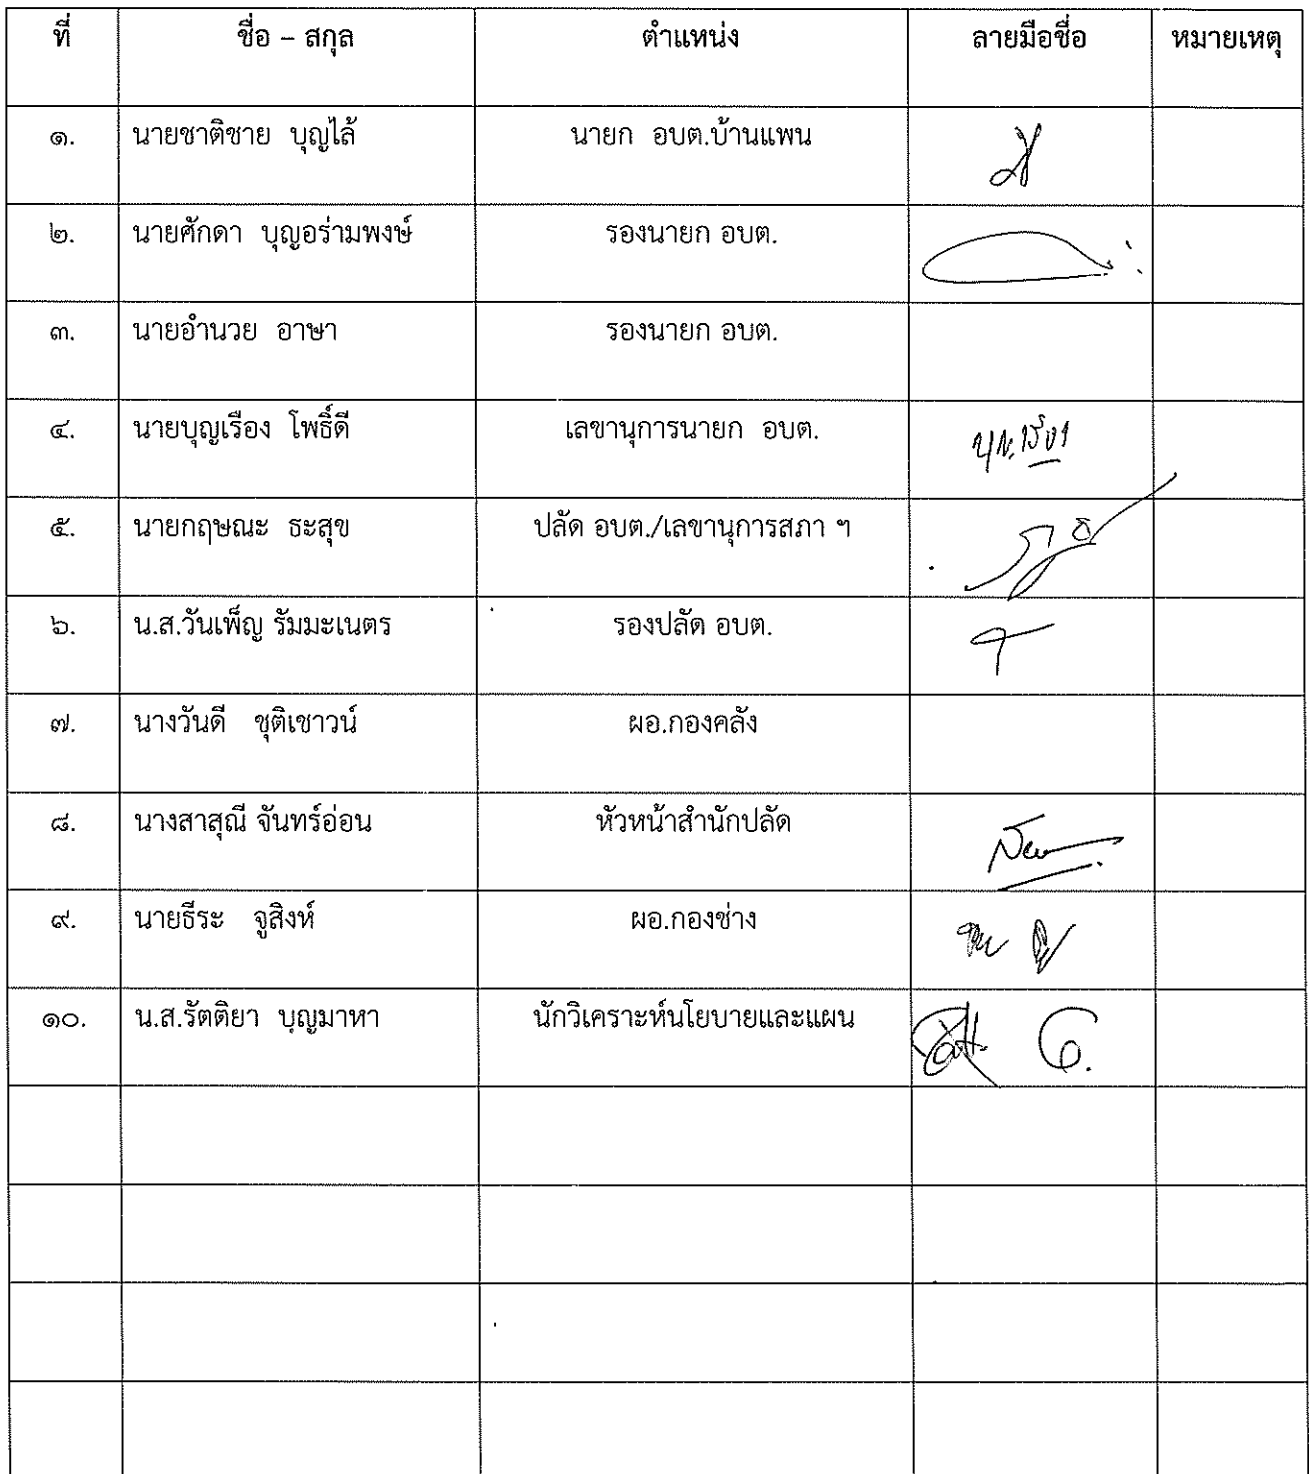 ที่ ชื่อ – สกุล ตำแหน่ง ลายมือชื่อ หมายเหตุ
๑. นายชาติชาย บุญไล้ นายก อบต.บ้านแพน
๒. นายศักดา บุญอร่ามพงษ์ รองนายก อบต.
๓. นายอำนวย อาษา รองนายก อบต.
๔. นายบุญเรือง โพธิ์ดี เลขานุการนายก อบต.
๕. นายกฤษณะ ธะสุข ปลัด อบต./เลขานุการสภา ฯ
๖. น.ส.วันเพ็ญ รัมมะเนตร รองปลัด อบต.
๗. นางวันดี ชุติเชาวน์ ผอ.กองคลัง
๘. นางสาสุณี จันทร์อ่อน หัวหน้าสำนักปลัด
๙. นายธีระ จูสิงห์ ผอ.กองช่าง
๑๐. น.ส.รัตติยา บุญมาหา นักวิเคราะห์นโยบายและแผน